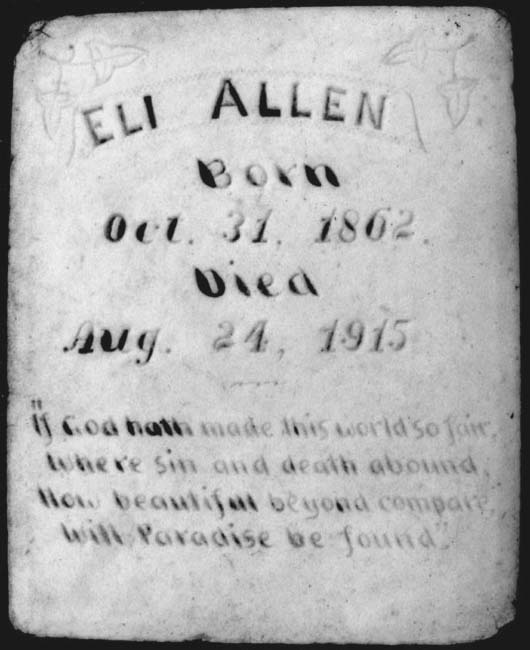 ELI ALLEN
Born
Oct. 31, 1862.
Died
Aug. 24, 1915
"If God hath made this world so fair,
Where sin and death abound,
How beautiful beyond compare,
Will Paradise be found."